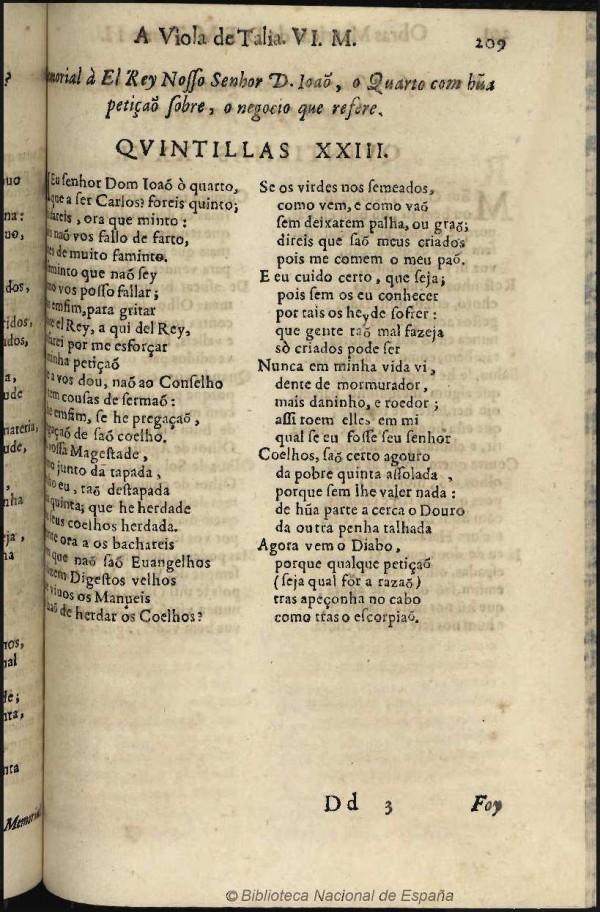 A Viola de Talia. VI. M.
209
morial à El Rey Nosso Senhor D. Ioaõ, o Quarto com hũa
petiçaõ sobre, o negocio que refere.
QVINTILLAS XXIII.
Eu senhor Dom Ioaõ ò quarto,
que a ser Carlos? foreis quinto;
fareis, ora que minto:
naõ vos fallo de farto,
de muito faminto.
faminto que naõ sey
vos posso fallar;
emfim, para gritar
el Rey, a qui del Rey,
por me esforçar
minha petiçaõ
a vos dou, naõ ao Conselho
tem cousas de sermaõ:
emfim, se he pregaçaõ,
de saõ coelho.
vossa Magestade,
junto da tapada,
eu, taõ destapada
quinta; que he herdade
coelhos herdada.
ora a os bachareis
que naõ saõ Euangelhos
Digestos velhos
viuos os Manueis
de herdar os Coelhos?
Se os virdes nos semeados,
como vem, e como vaõ
sem deixarem palha, ou graõ;
direis que saõ meus criados
pois me comem o meu paõ.
E eu cuido certo, que seja;
pois sem os eu conhecer
por tais os hey de sofrer:
que gente taõ mal fazeja
sò criados pode ser
Nunca em minha vida vi,
dente de mormurador,
mais daninho, e roedor;
assi roem elles em mi
qual se eu fosse seu senhor
Coelhos, saõ certo agouro
da pobre quinta assolada,
porque sem lhe valer nada:
de hũa parte a cerca o Douro
da outra penha talhada
Agora vem o Diabo,
porque qualque petiçaõ
(seja qual for a razaõ)
tras apeçonha no cabo
como tras o escorpiaõ.
Dd 3
Foy
© Biblioteca Nacional de España